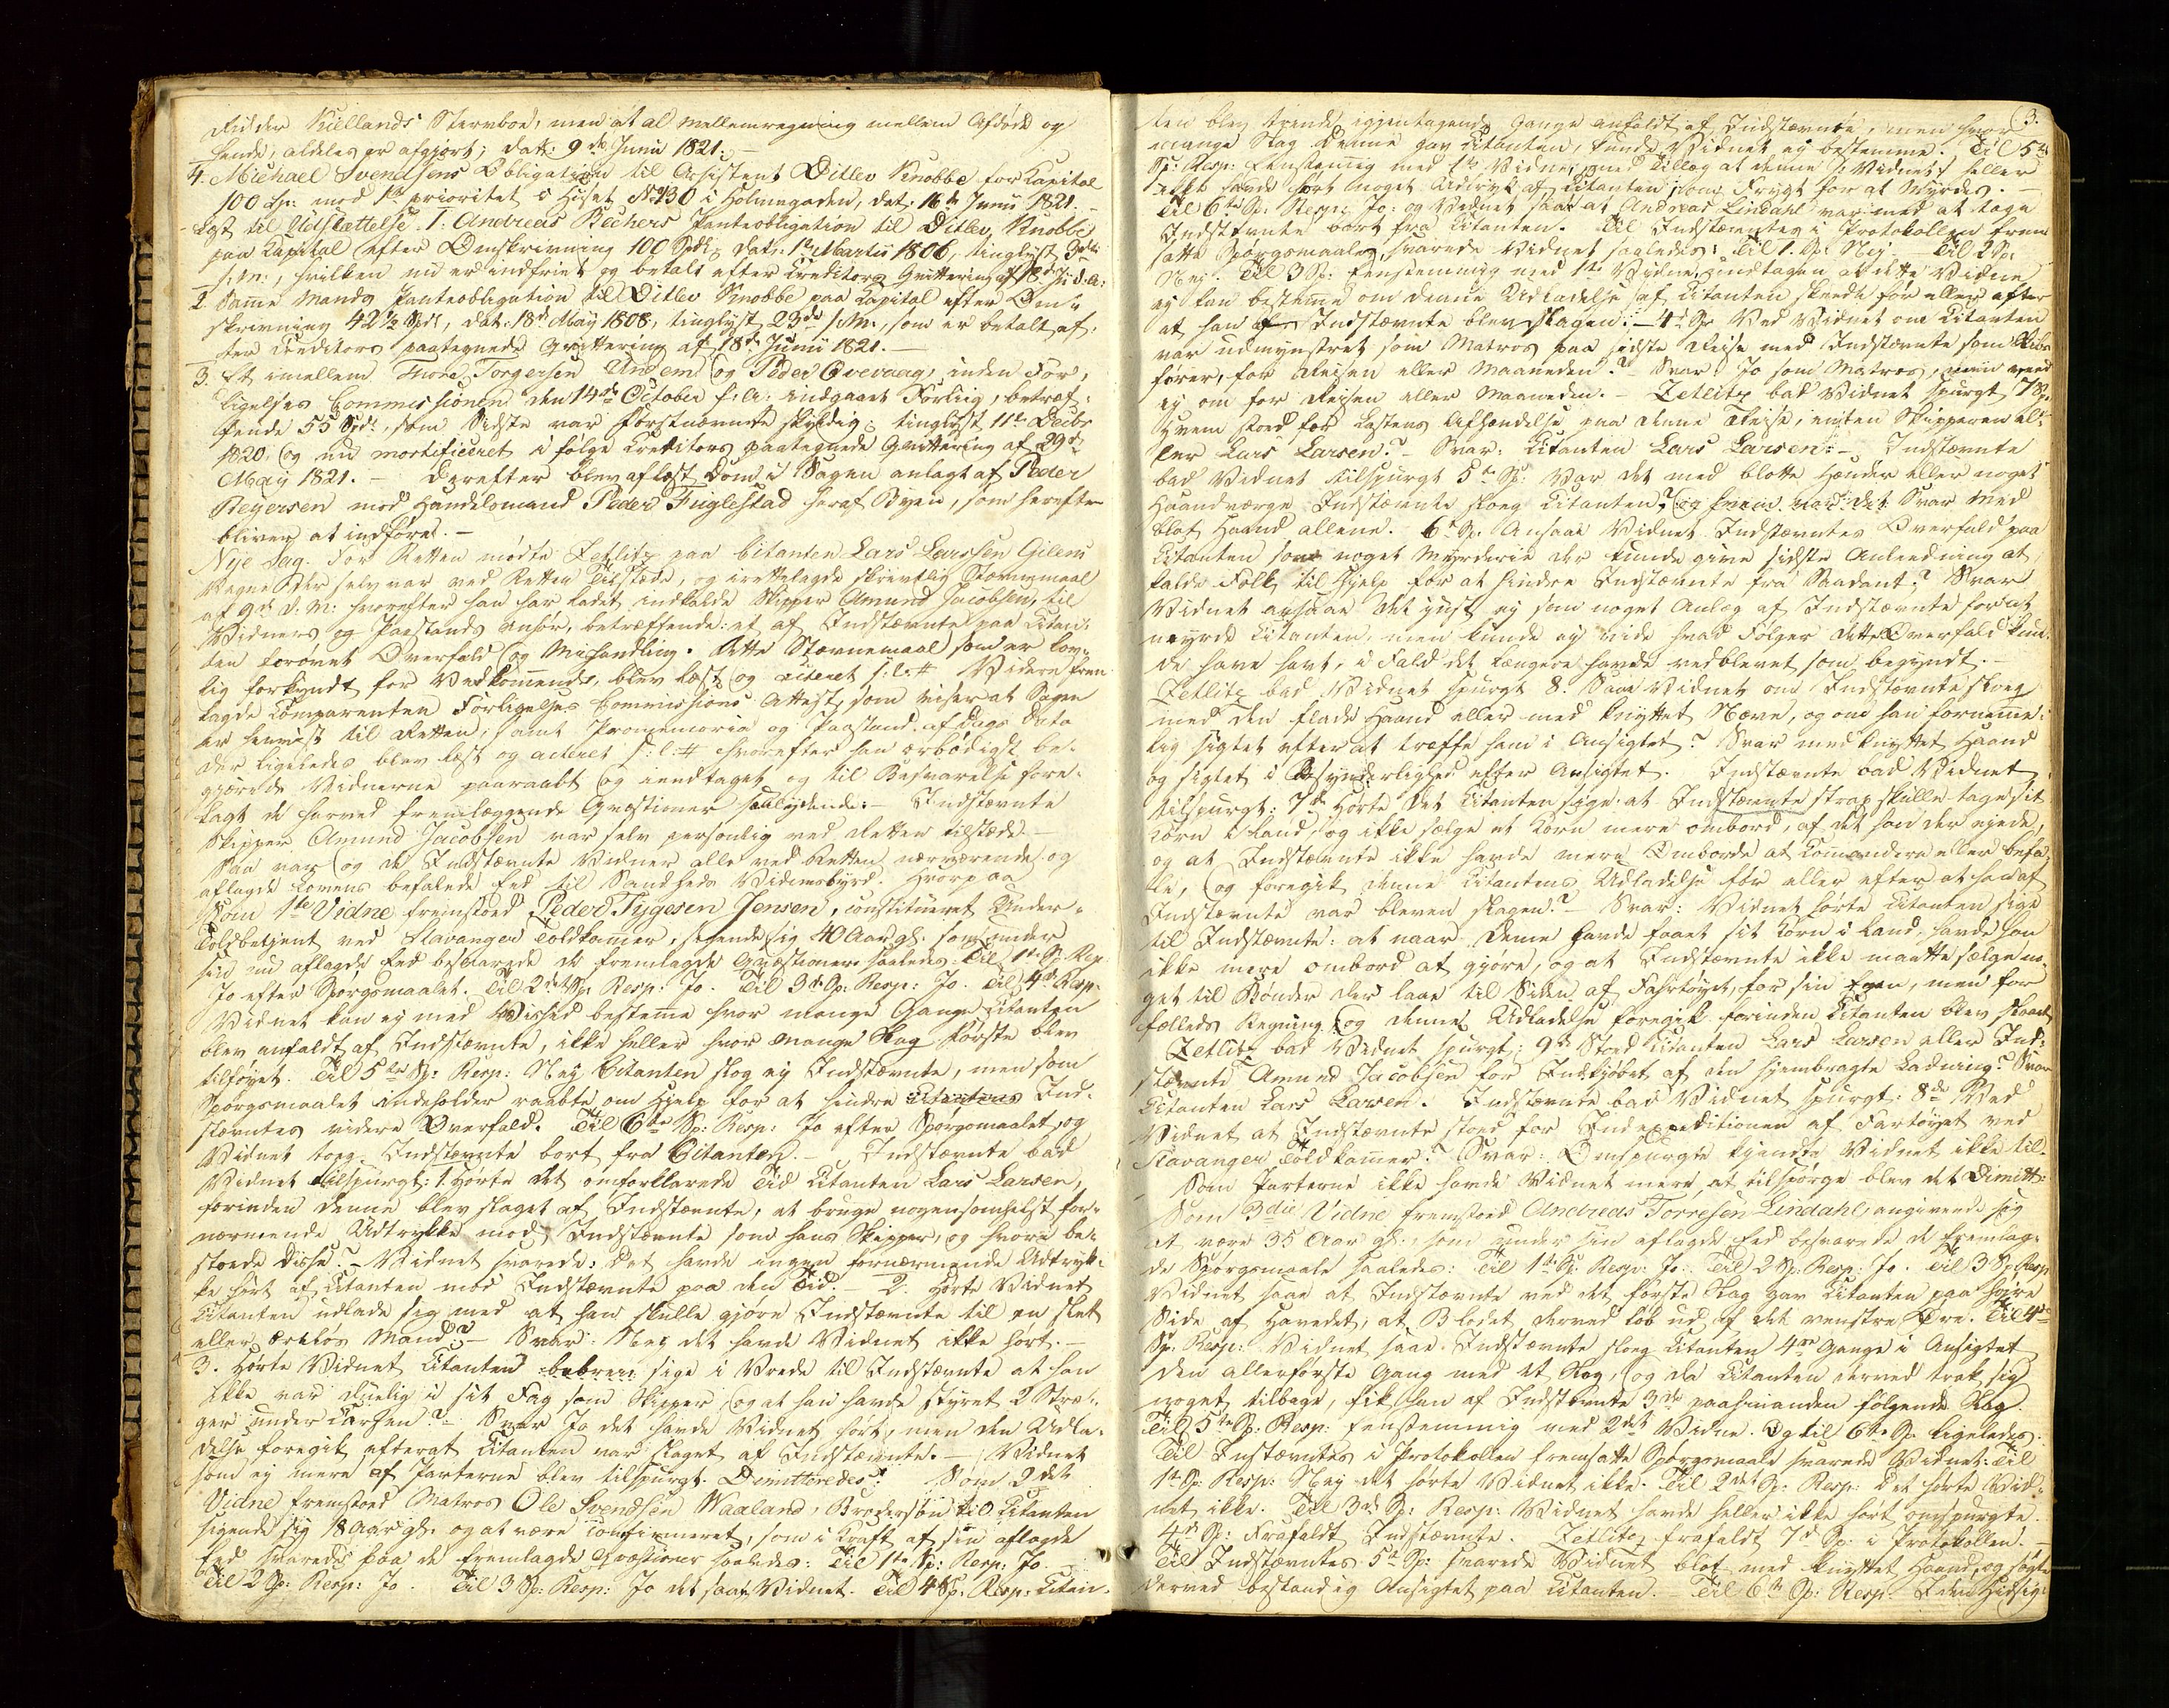 Ridder Kiellands Stervboe, men at al Mellemregning mellem Afdøde og
hende, aldeles er afgiort; dat: 9de Junii 1821. —
4. Michael Svendsens Obligation til Assistent Ditlev Knobbe for Kapital
100 Sp: med 1ste prioritet i Huset No 130 i Holmegaden, dat. 16de Junii 1821. —
Læst til Udslættelse. 1. Andreas Bechers Panteobligation til Ditlev Knobbe
paa Kapital efter Omskrivning 100 Spdl, dat: 1ste Martii 1806, tinglyst 3die
s: M:, hvilken nu er indfriet og betalt efter Creditors Qvittering af 18de Ju: d: A:
2. Samme Mands Panteobligation til Ditlev Knobbe paa Kapital efter Om-
skrivning 42½ Spdl, dat: 18de May 1808, tinglyst 23de s. M., som er betalt ef-
ter Creditors paategnede Qvittering af 18de Junii 1821. —
3. Et imellem Thore Torgersen Undem og Peder Qvevaag, inden For-
ligelses Commissionen den 14de October f: A: indgaaet Forliig, betræf-
fende 55 Spdl, som Sidste var Førstnævnte skyldig; tinglyst 11te Decbr
1820, og nu mortificeret i følge Creditors paategnede Qvittering af 29de
May 1821. — Derefter blev aflæst Dom i Sagen anlagt af Peder
Reyersen mod Handelsmand Peder Fuglestad heraf Byen, som herefter
bliver at indføre. —
Nye Sag. For Retten mødte Zetlitz paa Citanten Lars Larssen Gilem
Vegne der selv var ved Retten Tilstæde, og irettelagde skrivtlig Stævnemaal
af 9de d: M: hvorefter han har ladet indkalde Skipper Amund Jacobsen, til
Vidners og Paastands anhør, betræffende: et af Indstævnte paa Citan-
ten forøvet Overfald og Mishandling. Dette Stævnemaal som er lov-
lig forkyndt for Vedkommende, blev læst og acteret s: l: # Videre frem
lagde Comparenten Forligelses Commissions Attest, som viser at Sagen
er henvist til Retten, samt Promemoria og Paastand af Dags Dato
der ligeledes blev læst og acteret s: l: # hvorefter han ærbødigst be-
gjærede Vidnerne paaraabt og eendtaget og til Besvarelse fore-
lagt de herved fremlæggende Qvæstioner saalydende: — Indstævnte
Skipper Amund Jacobsen var selv personlig ved Retten tilstæde. —
Saa var og de Indstævnte Vidner alle ved Retten nærværende og
aflagde Lovens befalede Eed til Sandheds Vidnesbyrd. Hvorpaa
Som 1ste Vidne fremstoed Peder Tygesen Jensen, constitueret Under-
Toldbetjent ved Stavanger Toldkamer, sigende sig 40 Aar gl. som under
sin nu aflagde Eed besvarede de fremlagde Qvæstioner saaledes: Til 1ste Sp: Resp:
Jo efter Spørgsmaalet. Til 2det Sp: Resp: Jo. Til 3de Sp: Resp: Jo. Til 4de Resp:
Vidnet kan ej med Vished bestemme hvor mange Gange Citanten
blev anfaldt af Indstævnte, ikke heller hvor mange Slag Første blev
tilføyet. Til 5te Sp: Resp: Nej Citanten slog ej Indstævnte, men som
Spørgsmaalet indeholder raabte om Hjelp for at hindre Ind-
stævntes videre Overfald. Til 6te Sp: Resp: Jo efter Spørgsmaalet, og
Vidnet toeg Indstævnte bort fra Citanten. — Indstævnte bad
Vidnet tilspurgt: 1. Hørte det omforklarede Tid Citanten Lars Larsen,
forinden denne blev slaget af Indstævnte, at bruge nogensomhelst for-
nærmende Udtrykke mod Indstævnte som hans Skipper, og hvori be-
stoede disse? — Vidnet svarede: Det havde ingen fornærmende Udtryk-
ke hørt af Citanten mod Indstævnte paa den Tid. — 2. Hørte Vidnet
Citanten udlade sig med at han skulle gjøre Indstævnte til en slet
eller ærløs Mand? — Svar: Nej det havde Vidnet ikke hørt. —
3. Hørte Vidnet Citanten sige i Vrede til Indstævnte at han
ikke var duelig i sit Fag som Skipper, og at han havde styret 2 Stræ-
ger under Coursen? — Svar Jo det havde Vidnet hørt, men den Udla-
delse foregik efterat Citanten var slaget af Indstævnte. — Vidnet
som ej mere af Parterne blev tilspurgt. Dimitteredes. Som 2det
Vidne fremstoed Matros Ole Svendsen Waaland, Brodersøn til Citanten
sigende sig 18 Aar gl. og at være confirmeret, som i Kraft af sin aflagde
Eed svarede paa de fremlagde Qvæstioner saaledes: Til 1te Sp: Resp: Jo. —
Til 2 Sp: Resp: Jo. Til 3 Sp: Resp: Jo det saae Vidnet. Til 4 Sp: Resp: Citan-
3.
ten blev trende igjentagende Gange anfaldt af Indstævnte, men hvor
mange Slag denne gav Citanten, kunde Vidnet ej bestemme. Til 5te
Sp: Resp: Eenstemmig med 1te Vidne, med Tillæg at denne Vidnet heller
ikke havde hørt noget Udtryk af Citanten som Frygt for at Myrdes. —
Til 6te Sp: Resp: Jo: og Vidnet saae at Andreas Lindahl var med at tage
Indstævnte bort fra Citanten. Til Indstævntes i Protokollen frem
satte Spørgsmaale, svarede Vidnet saaledes: Til 1. Sp: Nej. — Til 2 Sp:
Nej. Til 3 Sp: Eenstemmig med 1te Vidne, undtagen at dette Vidne
ej kan bestemme om denne Udladelse af Citanten skeedte før eller efter
at han af Indstævnte blev slagen. — 4de Sp: Ved Vidnet om Citanten
var udmynstret som Matros paa sidste Reise med Indstævnte som Skibs
fører, for Reisen eller Maaneden? — Svar: Jo som Matros, men veed
ej om for Reisen eller Maaneden. — Zetlitz bad Vidnet spurgt 7 Sp:
Hvem stoed for Lastens Afhændelse paa denne Reise, enten Skipperen el-
ler Lars Larsen? — Svar: Citanten Lars Larsen. — Indstævnte
bad Vidnet tilspurgt 5te Sp: Var det med blotte Hænder eller noget
Haandværge Indstævnte sloeg Citanten? Svar Med
blot Haand allene. 6te Sp: Ansaae Vidnet Indstævntes Overfald paa
Citanten som noget Myrderie der kunde give sidste Anledning at
kalde Folk til Hjelp for at hindre Indstævnte fra Saadant? Svar
Vidnet ansaae det just ej som noget Anlæg af Indstævnte for at
myrde Citanten, men kunde ej vide hvad Følger dette Overfald kun-
de have havt, i Fald det længere havde vedblevet som begyndt. —
Zetlitz bad Vidnet spurgt 8. Saae Vidnet om Indstævnte sloeg
med den flade Haand eller med knyttet Næve, og om han fornemme-
lig sigtet efter at træffe ham i Ansigtet? Svar med knyttet Haand
og sigtet i Besynderlighed efter Ansigtet. Indstævnte bad Vidnet
tilspurgt: 7de Hørte det Citanten sige at Indstævnte strax skulle tage sit
Korn i Land, og ikke sælge et Korn mere ombord, af det han der eyede,
og at Indstævnte ikke havde mere Omborde at Commandere eller befa-
le, og foregik denne Citantens Udladelse før eller efter at han af
Indstævnte var bleven slagen? — Svar: Vidnet hørte Citanten sige
til Indstævnte: at naar denne havde faaet sit Korn i Land, havde han
ikke mere ombord at gjøre, og at Indstævnte ikke maatte sælge no-
get til Bønder der laae til Siden af Fahrtøyet, for sin Egen, men for
fælleds Regning og denne Udladelse foregik forinden Citanten blev slaaet
Zetlitz bad Vidnet spurgt: 9de Stoed Citanten Lars Larsen eller Ind-
stævnte Amund Jacobsen for Indkjøbet af den hjembragte Ladning? Svar
Citanten Lars Larsen. Indstævnte bad Vidnet spurgt: 8de Ved
Vidnet at Indstævnte stoed for Indexpeditionen af Fartøyet ved
Stavanger Toldkamer? Svar: Omspurgte kjendte Vidnet ikke til.
Som Parterne ikke havde Vidnet mere at tilspørge blev det Dimitt:
Som 3die Vidne fremstoed Andreas Torresen Lindahl, angivende sig
at være 35 Aar gl., som under sin aflagde Eed besvarede de fremlag-
de Spørgsmaale saaledes: Til 1te Sp: Resp: Jo. Til 2 Sp: Resp: Jo. Til 3 Sp: Resp
Vidnet saae at Indstævnte ved det første Slag gav Citanten paa højre
Side af Hovedet, at Blodet derved løb ud af det venstre Øre. Til 4de
Sp: Resp: Vidnet saae Indstævnte sloeg Citanten 4re Gange i Ansigtet
den allerførste Gang med et Slag, og da Citanten derved trak sig
noget tilbage, fik han af Indstævnte 3de paahinanden følgende Slag.
Til 5te Sp: Resp: Eenstemmig med 2det Vidne. Og til 6te Sp: ligeledes.
Til Indstævntes i Protokollen fremsatte Spørgsmaale svarede Vidnet: Til
1te Sp: Resp: Nej det hørte Vidnet ikke. Til 2det Sp: Resp: Det hørte Vid-
net ikke. Til 3de Sp: Resp: Vidnet havde heller ikke hørt omspurgte.
4de Sp: frafaldt Indstævnte. Zetlitz frafaldt 7de Sp: i Protokollen. —
Til Indstævntes 5te Sp: svarede Vidnet blot med knyttet Haand, og søgte
derved bestandig Ansigtet paa Citanten. — Til 6te Sp: Resp: I den Hidsig-